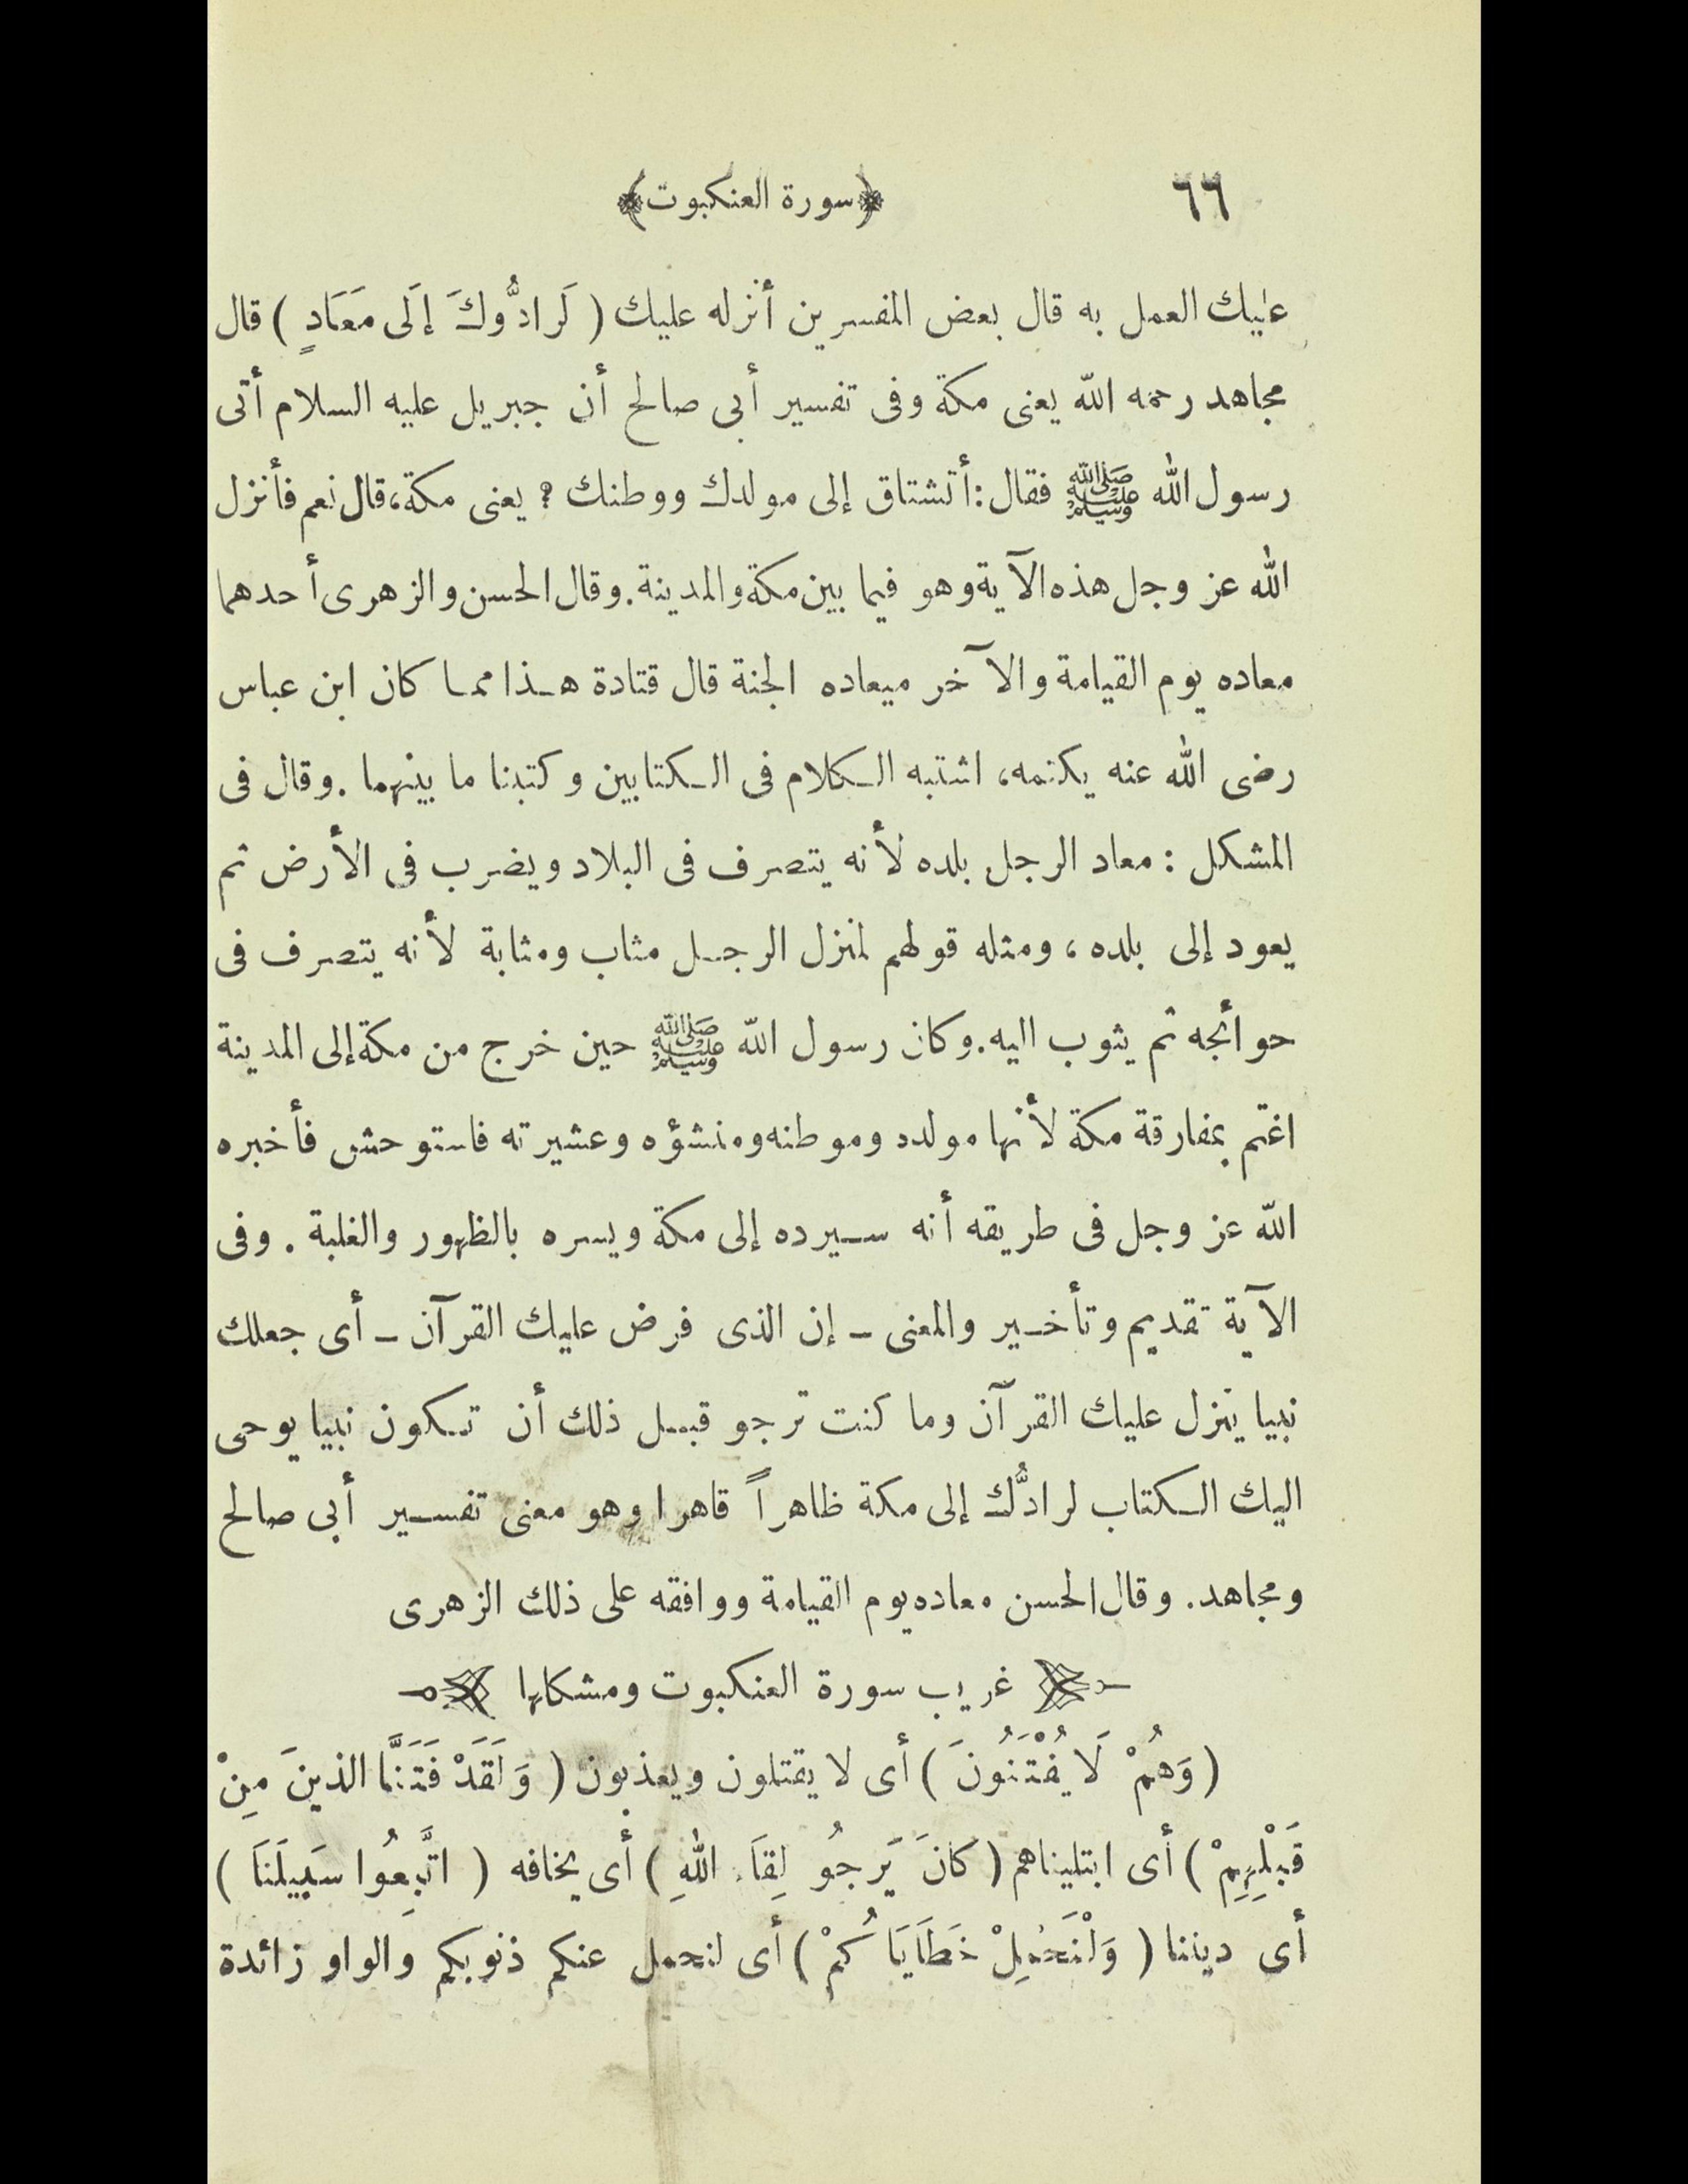 ٦٦ ﴿سورة العنكبوت﴾
عليك العمل به قال بعض المفسرين أنزله عليك ( لَرادُّوكَ إلَى مَعَادٍ ) قال
مجاهد رحمه الله يعنى مكة وفى تفسير أبى صالح أن جبريل عليه السلام أتى
رسول الله ﷺ فقال: أتشتاق إلى مولدك ووطنك ؟ يعنى مكة، قال نعم فأنزل
الله عز وجل هذه الآية وهو فيما بين مكة والمدينة. وقال الحسن والزهرى أحدهما
معاده يوم القيامة والآخر ميعاده الجنة قال قتادة هـذا ممـا كان ابن عباس
رضى الله عنه يكتمه، اشتبه الـكلام فى الـكتابين وكتبنا ما بينهما . وقال فى
المشكل : معاد الرجل بلده لأنه يتصرف فى البلاد ويضرب فى الأرض ثم
يعود إلى بلده ، ومثله قولهم لمنزل الرجـل مثاب ومثابة لأنه يتصرف فى
حوائجه ثم يثوب اليه. وكان رسول الله ﷺ حين خرج من مكة إلى المدينة
اغتم بمفارقة مكة لأنها مولده وموطنه ومنشؤه وعشيرته فاستوحش فأخبره
الله عز وجل فى طريقه أنه سـيرده إلى مكة ويسره بالظهور والغلبة . وفى
الآية تقديم وتأخـير والمعنى ـ إن الذى فرض عليك القرآن ـ أى جعلك
نبيا ينزل عليك القرآن وما كنت ترجو قبـل ذلك أن تـكون نبيا يوحى
اليك الـكتاب لرادُّك إلى مكة ظاهراً قاهرا وهو معنى تفسـير أبى صالح
ومجاهد. وقال الحسن معاده يوم القيامة ووافقه على ذلك الزهرى
غريب سورة العنكبوت ومشكلها
( وَهُمْ لَا يُفْتَنُونَ ) أى لا يقتلون ويعذبون ( وَلَقَدْ فَتَنَّا الذينَ مِنْ
قَبْلِهِمْ ) أى ابتليناهم ( كانَ يَرجُو لِقَاءَ اللهِ ) أى يخافه ( اتَّبِعُوا سَبِيلَنَا )
أى ديننا ( وَلْنَحْمِلْ خَطَايَاكُمْ ) أى لنحمل عنكم ذنوبكم والواو زائدة